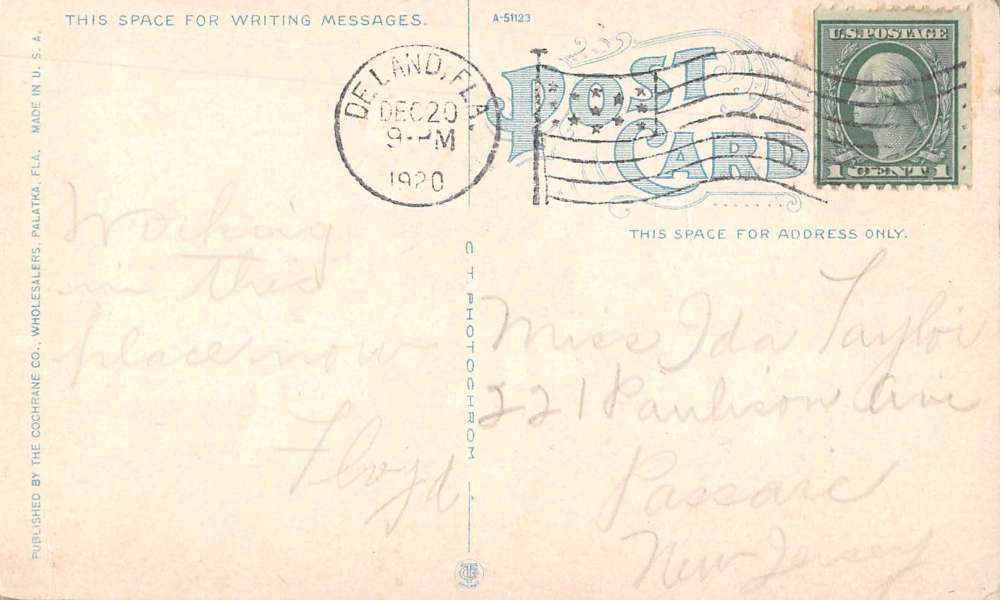 THIS SPACE FOR WRITING MESSAGES.
A-51123
DE LAND, FLA.
DEC 20
9-PM
1920
POST
CARD
U.S. POSTAGE
1 CENT 1
THIS SPACE FOR ADDRESS ONLY.
PUBLISHED BY THE COCHRANE CO., WHOLESALERS, PALATKA, FLA. MADE IN U. S. A.
C T PHOTOCHROM
Working
in this
place now
Floyd
Miss Ida Taylor
221 Paulison Ave
Passaic
New Jersey
CT